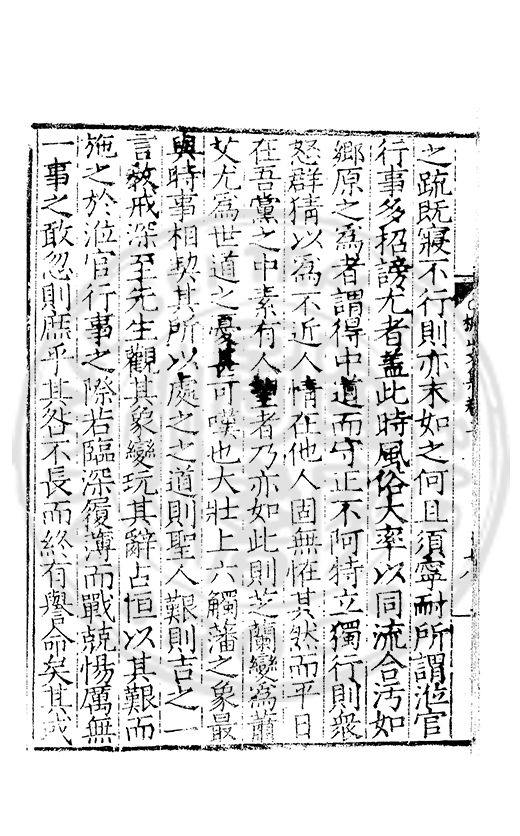 之疏旣寢不行則亦末如之何且須寧耐所謂涖官
行事多招謗尤者盖此時風俗大率以同流合汚如
鄉原之爲者謂得中道而守正不阿特立獨行則衆
怒群猜以爲不近人情在他人固無恠其然而平日
在吾黨之中素有人望者乃亦如此則芝蘭變爲蕭
艾尤爲世道之憂甚可嘆也大壯上六觸藩之象最
與時事相契其所以處之之道則聖人艱則吉之一
言敎戒深至先生觀其象變玩其辭占恒以其艱而
施之於涖官行事之際若臨深履薄而戰兢惕厲無
一事之敢忽則庶乎其咎不長而終有譽命矣其或